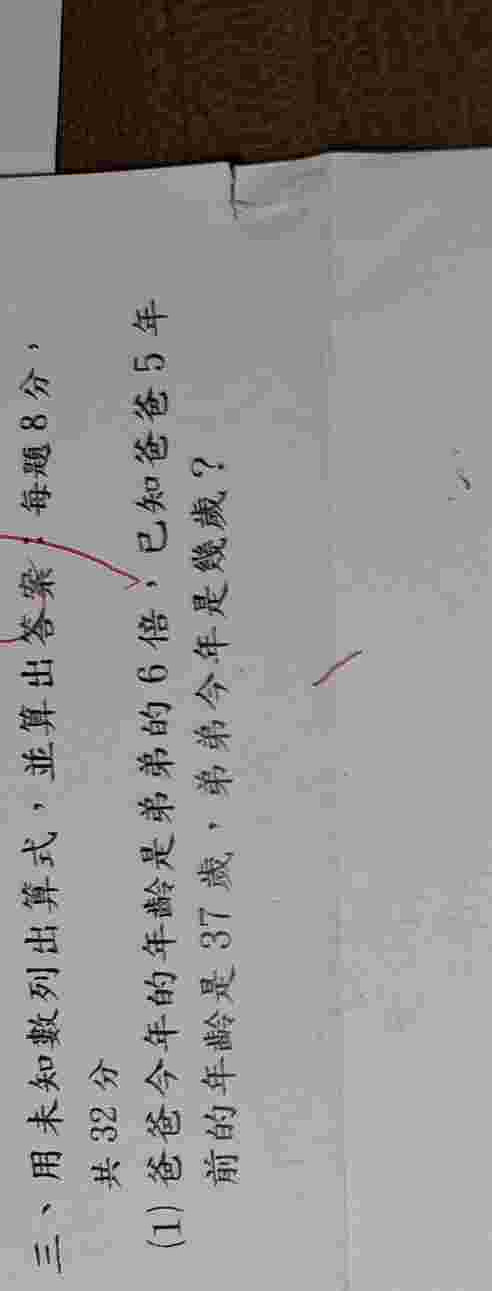 三、用未知數列出算式，並算出答案：每題8分，
共32分
(1) 爸爸今年的年齡是弟弟的6倍，已知爸爸5年
前的年齡是37歲，弟弟今年是幾歲？